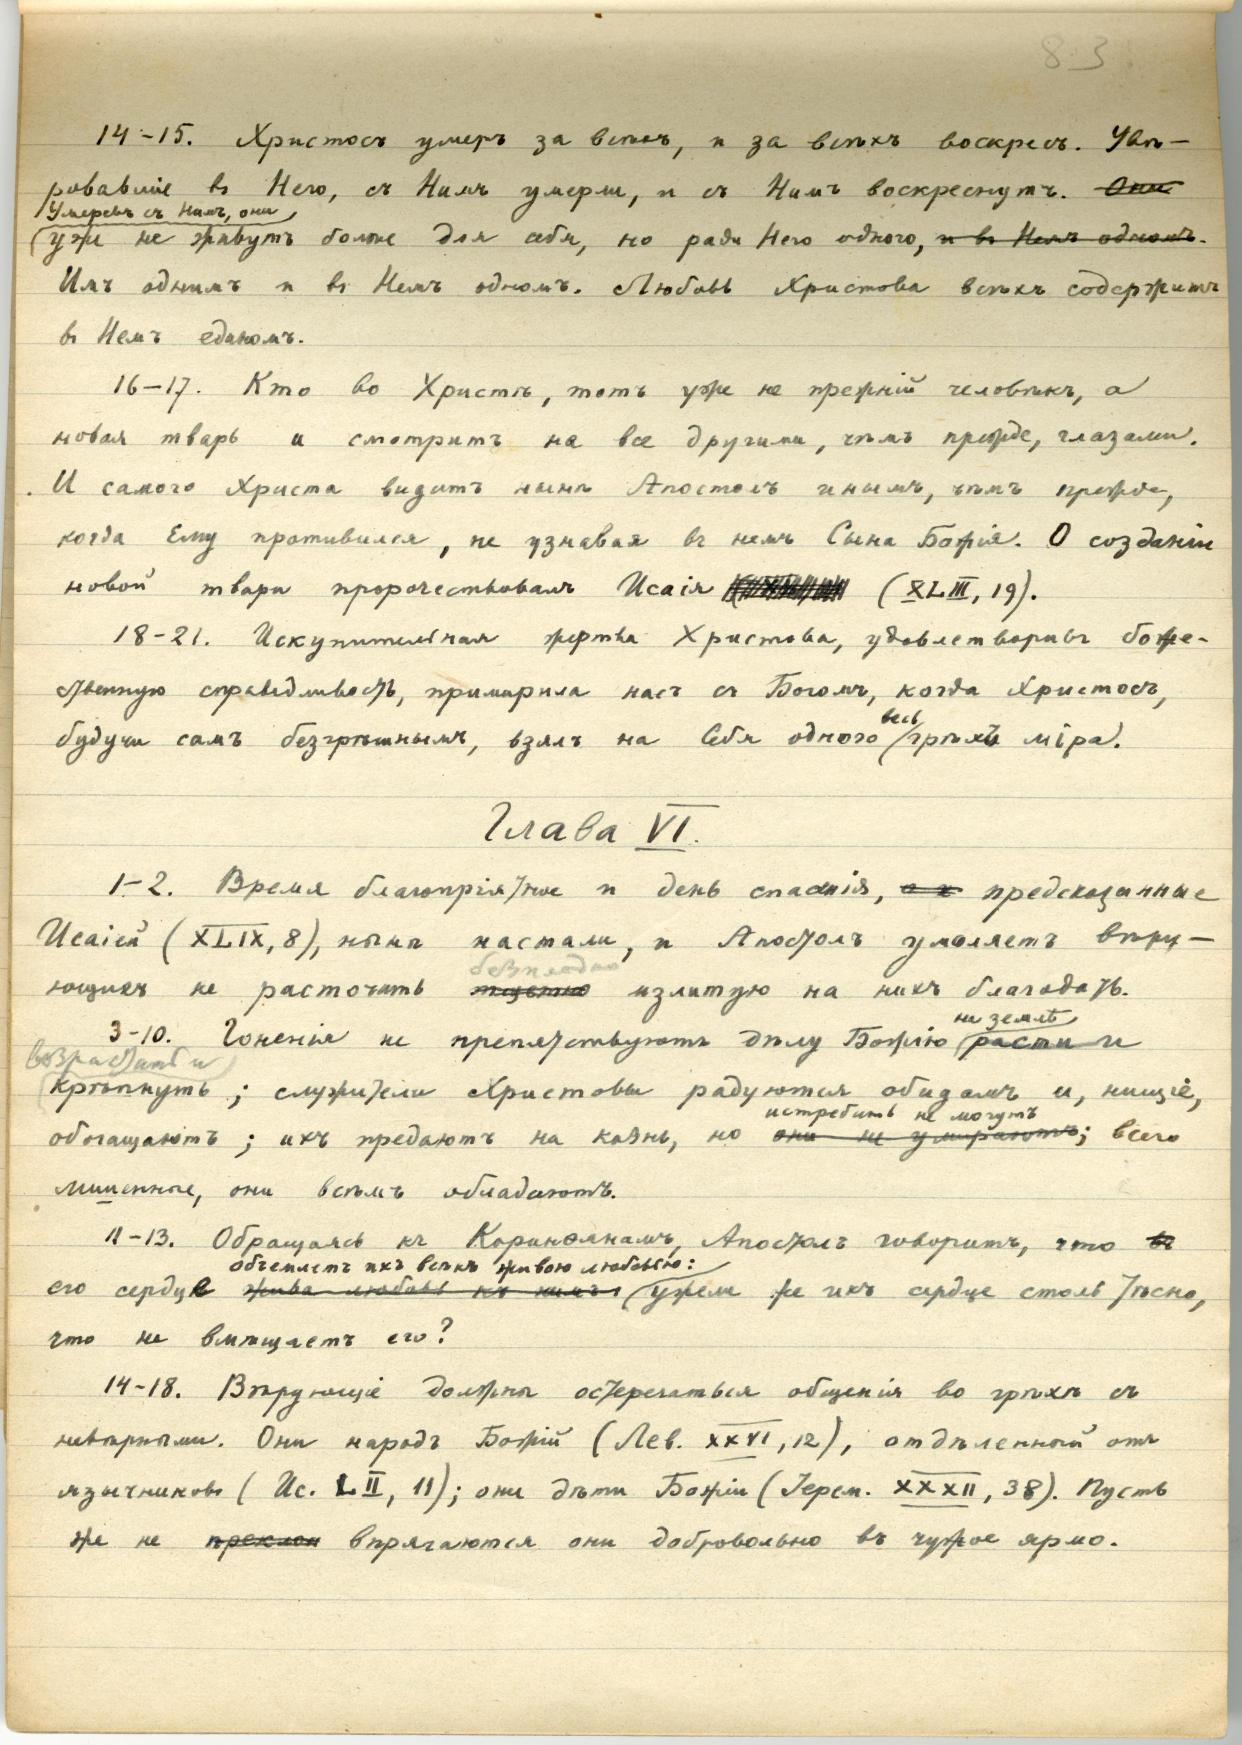 83
14-15. Христосъ умеръ за всѣхъ, и за всѣхъ воскресъ. Увѣ-
ровавшіе въ Него, съ Нимъ умерли, и съ Нимъ воскреснутъ. Они
Умеревъ съ Нимъ, они
уже не живутъ болѣе для себя, но ради Него одного, и въ Немъ одномъ.
Имъ однимъ и въ Немъ одномъ. Любовь Христова всѣхъ содержитъ
въ Немъ единомъ.
16-17. Кто во Христѣ, тотъ уже не прежній человѣкъ, а
новая тварь и смотритъ на все другими, чѣмъ прежде, глазами.
И самого Христа видитъ нынѣ Апостолъ инымъ, чѣмъ прежде,
когда Ему противился, не узнавая въ немъ Сына Божія. О созданіи
новой твари пророчествовалъ Исаія (XLIII, 19).
18-21. Искупительная жертва Христова, удовлетворивъ боже-
ственную справедливость, примирила насъ съ Богомъ, когда Христосъ,
будучи самъ безгрѣшнымъ, взялъ на Себя одного весь грѣхъ міра.
Глава VI.
1-2. Время благопріятное и день спасенія, предсказанные
Исаіей (XLIX, 8), нынѣ настали, и Апостолъ умоляетъ вѣру-
безплодно
ющихъ не расточить тщетно излитую на нихъ благодать.
на землѣ
3-10. Гоненія не препятствуютъ дѣлу Божію расти и
возрастать и
крѣпнуть; служители Христовы радуются обидамъ и, нищіе,
истребить не могутъ
обогащаютъ; ихъ предаютъ на казнь, но они не умираютъ; всего
лишенные, они всѣмъ обладаютъ.
11-13. Обращаясь къ Коринѳянамъ, Апостолъ говоритъ, что въ
объемлетъ ихъ всѣхъ живою любовью:
его сердце жива любовь къ нимъ: ужели же ихъ сердце столь тѣсно,
что не вмѣщаетъ его?
14-18. Вѣрующіе должны остерегаться общенія во грѣхѣ съ
невѣрными. Они народъ Божій (Лев. XXVI, 12), отдѣленный отъ
язычниковъ (Ис. LII, 11); они дѣти Божіи (Іерем. XXXII, 38). Пусть
же не преклон впрягаются они добровольно въ чужое ярмо.